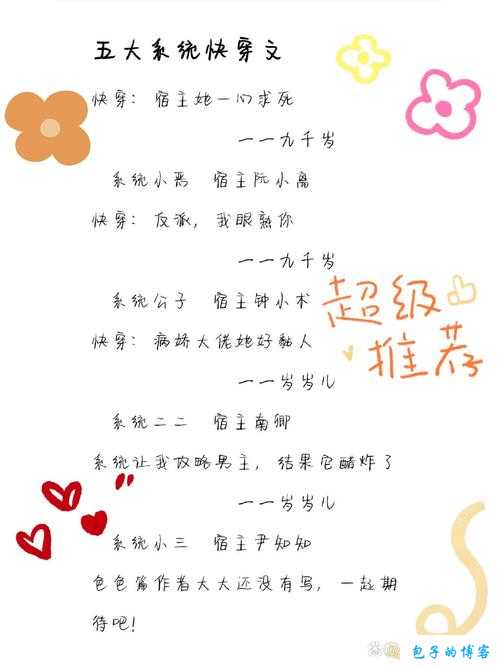 五大系统快穿文
快穿：宿主她一心求死
一一九千岁
系统小恶 宿主阮小离
快穿：反派，我眼熟你
一一九千岁
系统公子 宿主钟小术
超级
快穿：病娇大佬她好黏人
推荐
一一岁岁儿
系统二二 宿主南卿
系统让我攻略男主，结果它醋炸了
一一岁岁儿
系统小三 宿主尹知知
包包篇作者大大还没有写，一起期
待吧！
包子的博客